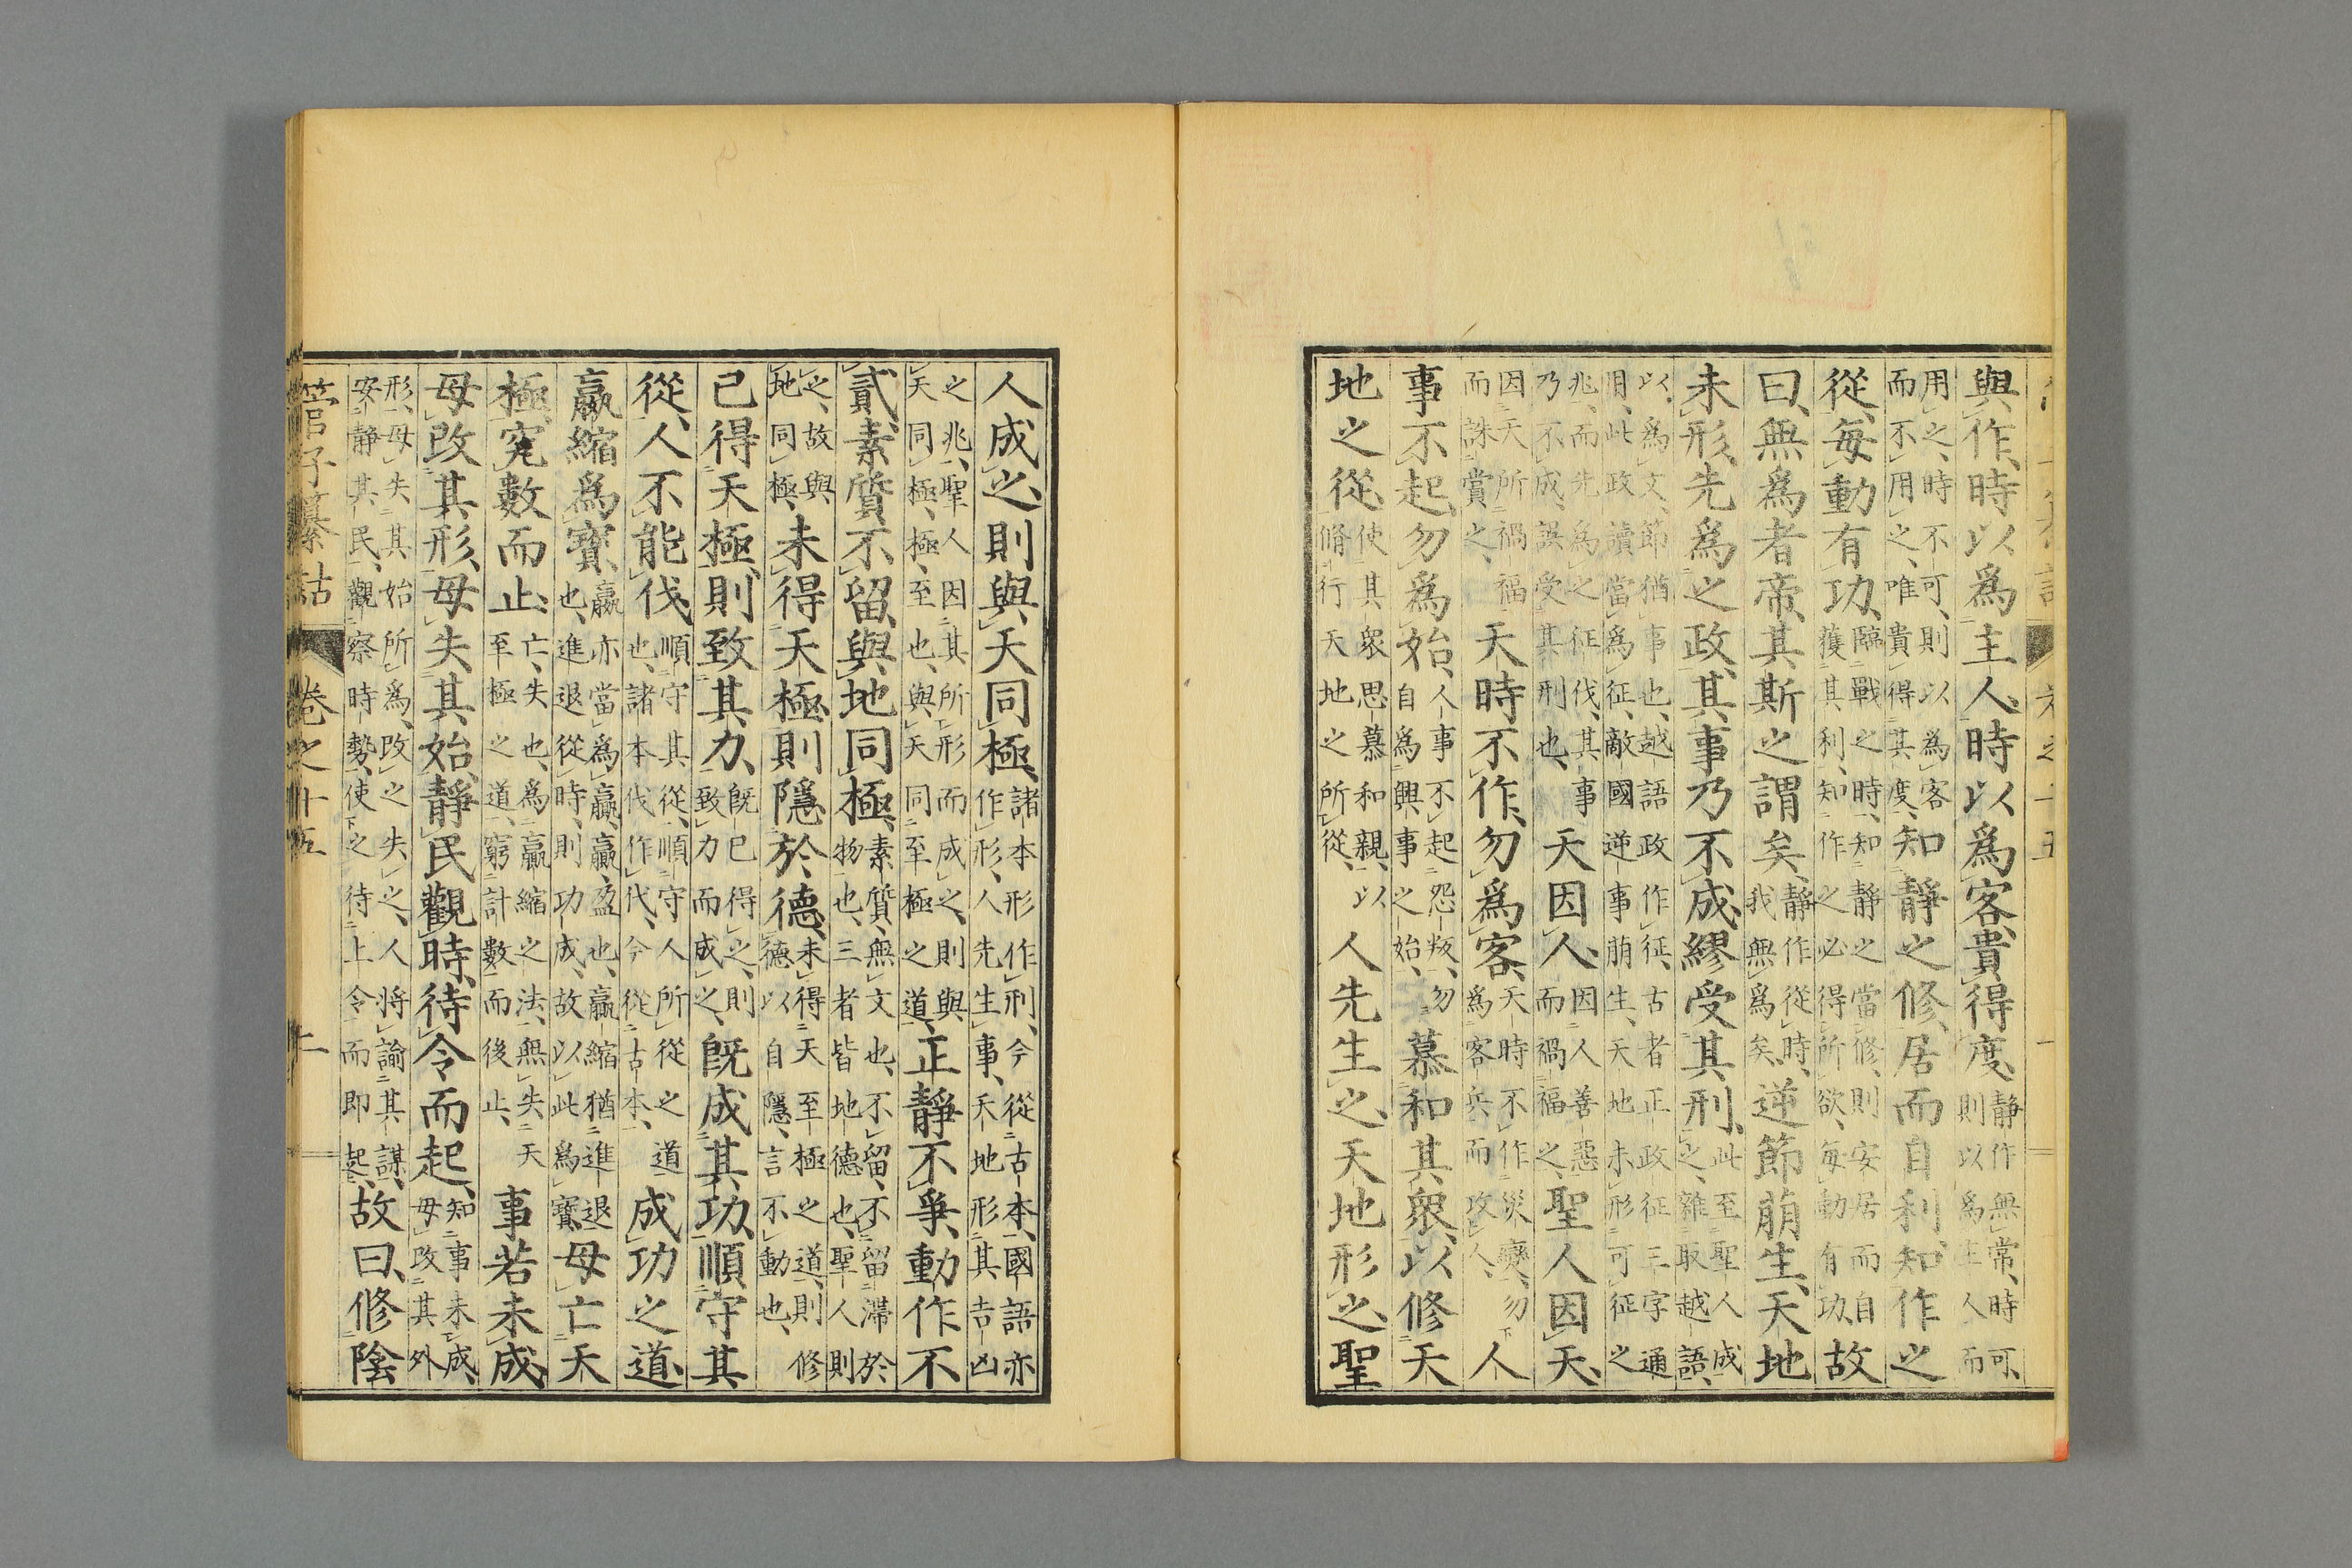 與作、時以爲主人、時以爲客、貴得度、靜作無常、時可、則以爲主人而
用之、時不可、則以爲客而不用之、唯貴得其度、知靜之修、居而自利、知作之
從、每動有功、臨戰之時、知靜之當修、則安居而自獲其利、知作之必得所欲、每動有功、故
曰、無爲者帝、其斯之謂矣、靜作從時、我無爲矣、逆節萠生、天地
未形、先爲之政、其事乃不成、繆受其刑、此至聖人成之、雖取越語、
以、爲文、節猶事也、越語政作征、古者正政征三字通用、此政、讀當爲征、敵國逆事萠生、天地未形、可征之
兆、而先爲之征伐、其事乃不成、誤受其刑也、天因人、因人善惡而禍福之、聖人因天、
因天所禍福而誅賞之、天時不作、勿爲客、天時不作災變、勿爲客兵而攻人、人
事不起、勿爲始、人事不起怨叛、勿自爲興事之始、慕和其衆、以修天
地之從、使其衆思慕和親、以脩行天地之所從、人先生之、天地形之、聖
人成之、則與天同極、諸本形作刑、今從古本、國語亦作形、人先生事、天地形其吉凶
之兆、聖人因其所形而成之、則與天同極、極、至也、與天同至極之道、正靜不爭、動作不
貳、素質不留、與地同極、素質、無文也、不留、不留滯於物也、三者皆地德也、聖人則
之、故與地同極、未得天極、則隱於德、未得天至極之道、則修德以自隱、言不動也、
已得天極、則致其力、既已得之、則致力而成之、既成其功、順守其
從、人不能伐、順守其從、順守人所從之道也、諸本伐作代、今從古本、成功之道、
嬴縮爲寶、嬴亦當爲贏、贏、盈也、贏縮猶進退也、進退從時、則功成、故以此爲寶、毋亡天
極、究數而止、亡、失也、爲贏縮之法、無失天至極之道、窮計數而後止、事若未成、
毋改其形、毋失其始、靜民觀時、待令而起、知事未成、毋改其外
形、毋失其始所爲、改之失之、人將諭其謀、安靜其民、觀察時勢、使之待上令而即起、故曰、修陰
管子纂詁 卷之十五